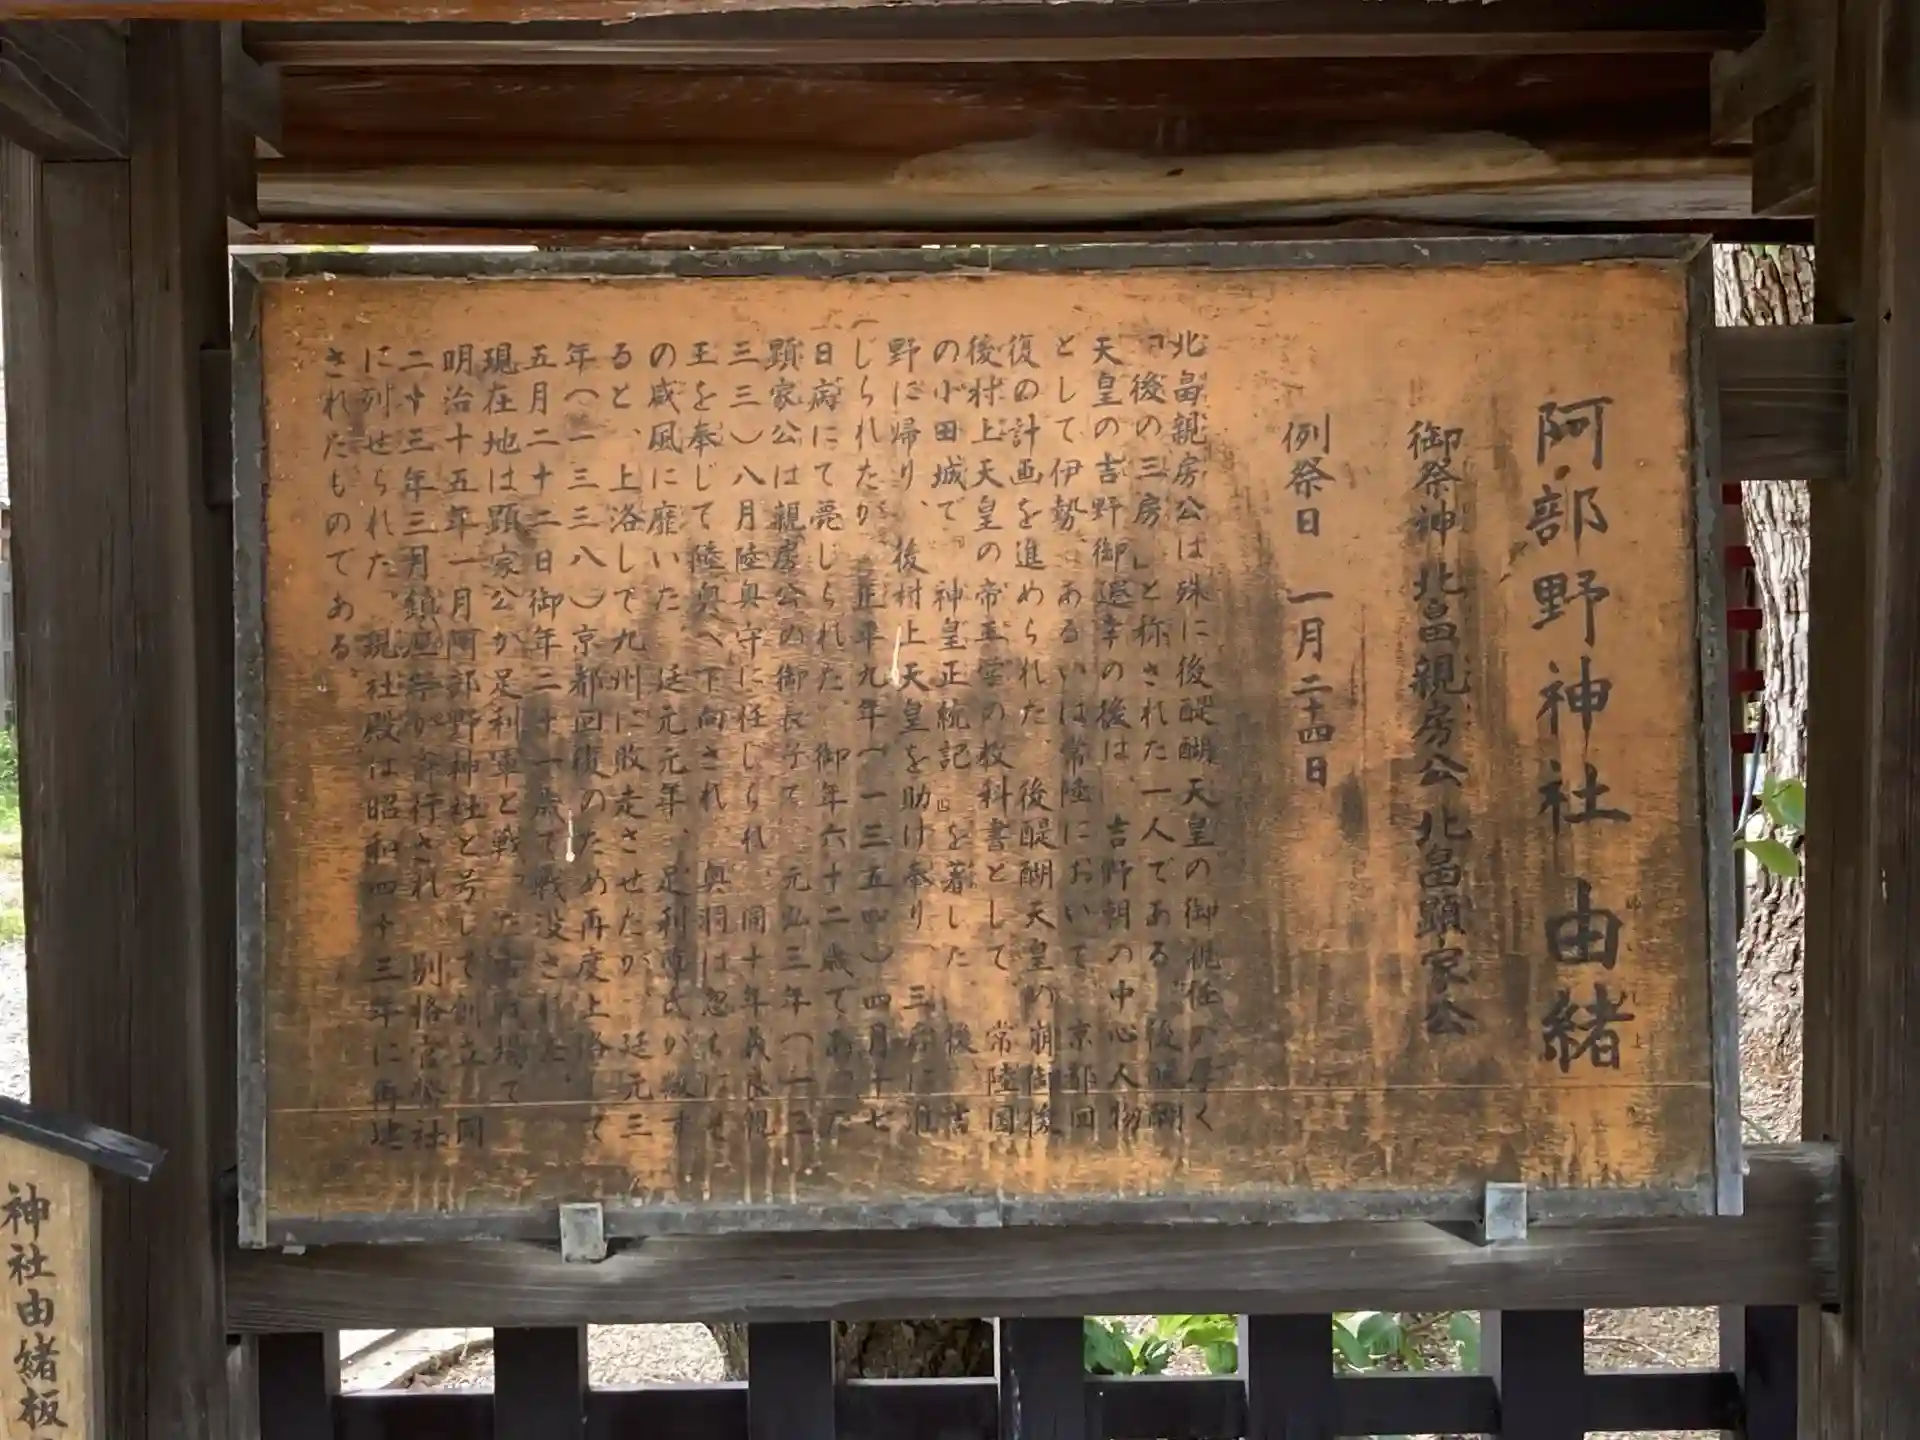 阿部野神社由緒
御祭神 北畠親房公 北畠顕家公
例祭日 一月二十四日
北畠親房公は殊に後醍醐天皇の御親任の厚く
「後の三房」と称された一人である。後醍醐
天皇の吉野御還幸の後は、吉野朝の中心人物
として伊勢あるいは常陸において京都回
復の計画を進められた。後醍醐天皇の崩御後
後村上天皇の帝王学の教科書として常陸国
の小田城で『神皇正統記』を著した。後、吉
野に帰り、後村上天皇を助け奉り、三后に准
じられたが、正平九年(一三五四)四月十七
日病にて薨じられた。御年六十二歳であった
顕家公は親房公の御長子で、元弘三年(一三
三三)八月陸奥守に任じられ、同十年義良親
王を奉じて陸奥へ下向され、奥羽は忽ちにそ
の威風に靡いた。延元元年、足利尊氏が叛す
ると、上洛して九州に敗走させたが、延元三
年(一三三八)京都回復のため再度上洛して
五月二十二日御年二十一歳で戦没された。
現在地は顕家公が足利軍と戦った古戦場で
明治十五年一月阿部野神社と号して創立、同
二十三年三月鎮座祭が斎行され、別格官幣社
に列せられた。現社殿は昭和四十三年に再建
されたものである。
神社由緒板